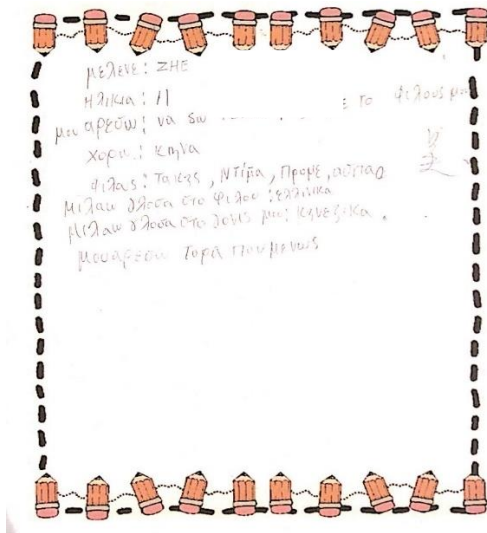 με λενε: ZHE
Ηλικια: 11
μου αρεσω: να δω ε το φιλους μου
χορα: κηνα
φιλας: Τακης, Ντίμα, Προμέ,
Μιλαω γλοσα στο φιλου: ελληνικα
Μιλαω γλοσα στο γονις μου: κηνεζικα.
μου αρεσω τορα που μενως